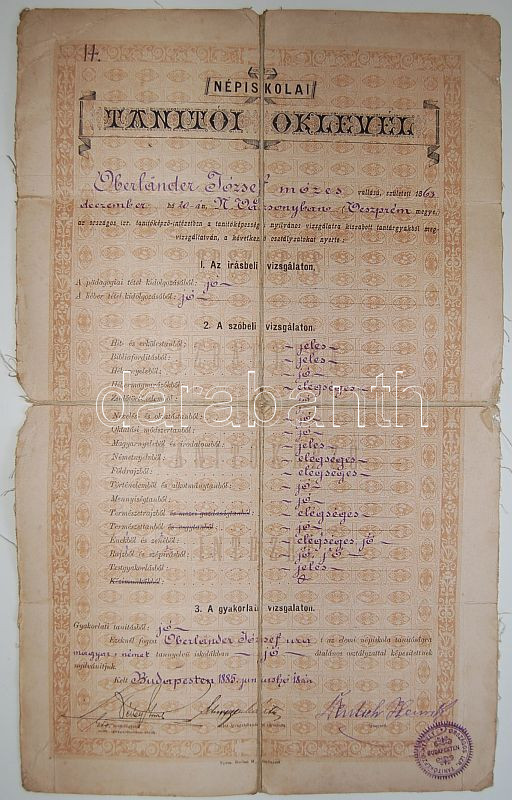 14.
NÉPISKOLAI
TANÍTÓI OKLEVÉL
Oberländer József mózes vallású, született 1863
deczember hó 20-án, N. Vázsonyban Veszprém megye,
az országos izr. tanítóképző-intézetben a tanítóképesség nyilvános vizsgálatra kiszabott tantárgyakból meg-
vizsgáltatván, a következő osztályzatokat nyerte:
1. Az írásbeli vizsgálaton.
A pädagogiai tétel kidolgozásából: jó
A héber tétel kidolgozásából: jó
2. A szóbeli vizsgálaton.
Hit- és erkölcstanból: jeles
Bibliafordításból: jeles
Héb. nyelvből: jó
elégséges
jó
Nevelés- és oktatástanból: jó
Oktatási módszertanból: jó
Magyarnyelvből és irodalomból: jeles
Németnyelvből: elégséges
Földrajzból: elégséges
Történelemből és alkotmánytanból: jó
Mennyiségtanból: jó
Természetrajzból és mezei gazdaságtanból: elégséges
Természettanból és vegytanból: jó
Énekből és zenéből: elégséges, jó
Rajzból és szépírásból: jó, jó
Testgyakorlásból: jeles
Kézimunkákból:
3. A gyakorlati vizsgálaton.
Gyakorlati tanításból: jó
Ezeknél fogva Oberländer József urat az elemi népiskola tanítóságra
magyar, német tannyelvű iskolákban jó általános osztályzattal képesítettnek
nyilvánítjuk.
Kelt Budapesten 1885. junius hó 18án.
BUDAPESTEN
darabanth